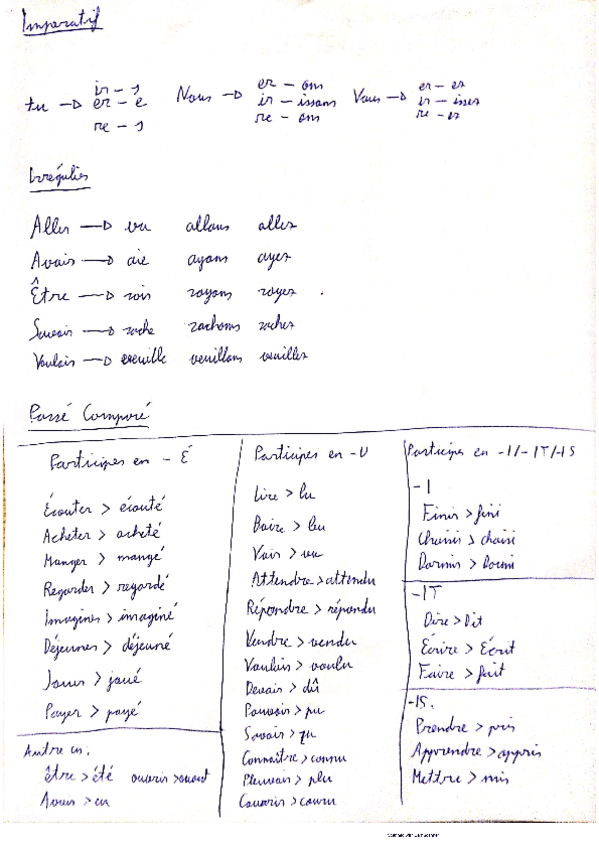 Imperatif
tu → ir - s
er - e
re - s
Nous → er - ons
ir - issons
re - ons
Vous → er - ez
ir - issez
re - ez
Irréguliers
Aller → va allons allez
Avoir → aie ayons ayez
Être → sois soyons soyez
Savoir → sache sachons sachez
Vouloir → veuille veuillons veuillez
Passé Composé
Participes en - É
Écouter > écouté
Acheter > acheté
Manger > mangé
Regarder > regardé
Imaginer > imaginé
Déjeuner > déjeuné
Jouer > joué
Payer > payé
Autre en.
être > été ouvrir > ouvert
Avoir > eu
Participes en -U
Lire > lu
Boire > bu
Voir > vu
Attendre > attendu
Répondre > répondu
Vendre > vendu
Vouloir > voulu
Devoir > dû
Pouvoir > pu
Savoir > su
Connaître > connu
Pleuvoir > plu
Courir > couru
Participes en -I/-IT/-IS
-I
Finir > fini
Choisir > choisi
Dormir > Dormi
-IT
Dire > Dit
Écrire > Écrit
Faire > fait
-IS.
Prendre > pris
Apprendre > appris
Mettre > mis
Scanned with CamScanner